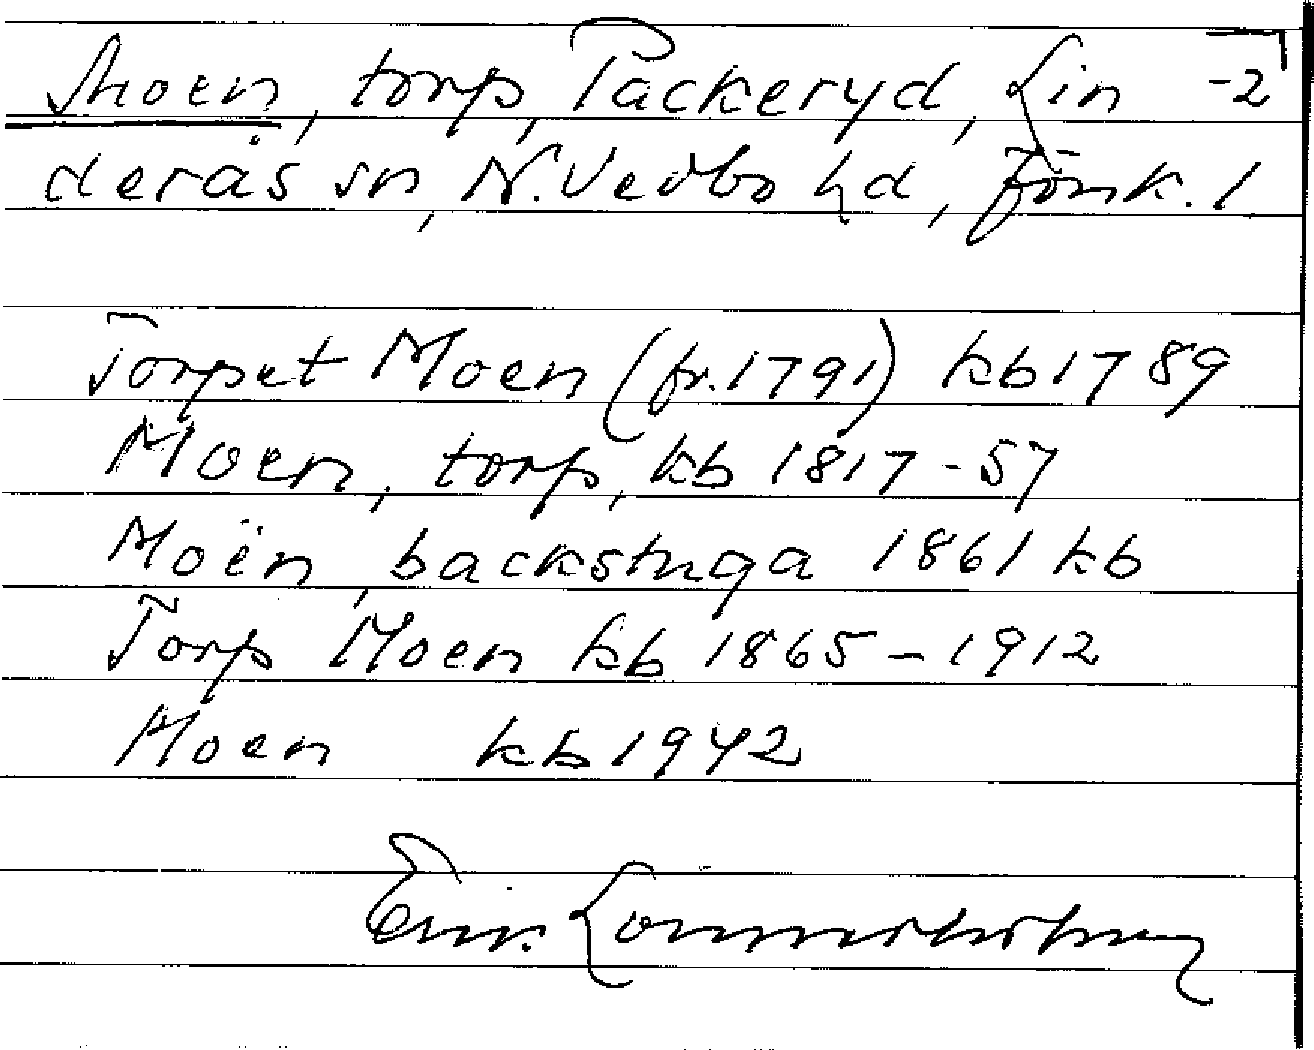 Moen, torp, Packeryd, Lin -2
derås sn, N. Vedbo hd, Jönk. l
Torpet Moen (fr. 1791) kb 1789
Moen, torp, kb 1817-57
Moën, backstuga 1861 kb
Torp Moen kb 1865-1912
Moen kb 1942